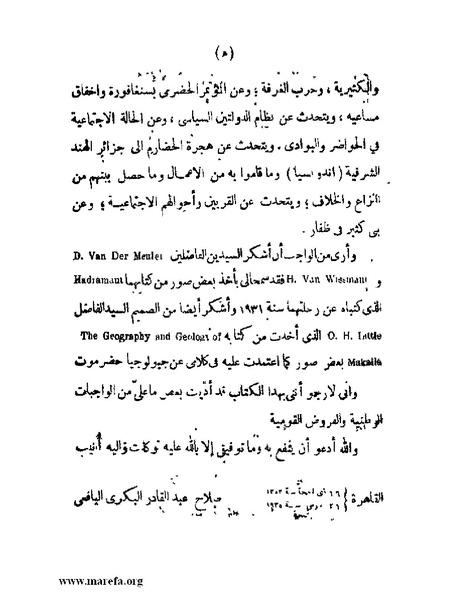 (ه)
والكثيرية ، وحرب الغرفة ؛ وعن المؤتمر الحضرمى بسنغافورة واخفاق
مساعيه ، ويتحدث عن نظام الدولتين السياسى ، وعن الحالة الاجتماعية
فى الحواضر والبوادى . ويتحدث عن هجرة الحضارم الى جزائر الهند
الشرقية ( اندونسيا ) وما قاموا به من الاعمال وما حصل بينهم من
النزاع والخلاف ؛ ويتحدث عن القربين وأحوالهم الاجتماعية ؛ وعن
بنى كثير فى ظفار .
وأرى من الواجب أن أشكر السيدين الفاضلين D. Van Der Meulen
و H. Van Wissmann فقد سمحا لى بأخذ بعض صور من كتابهما Hadramaut
الذى كتباه عن رحلتهما سنة ١٩٣١ وأشكر أيضا من الصميم السيد الفاضل
O. H. Little الذى أخذت من كتابه The Geography and Geology of
Makalla بعض صور كما اعتمدت عليه فى كلامى عن جيولوجيا حضرموت
وانى لارجو أننى بهذا الكتاب قد أديت بعض ما علىّ من الواجبات
الوطنية والفروض القومية
والله أدعو أن ينفع به وما توفيقى إلا بالله عليه توكلت واليه أنيب
القاهرة { ١٦ ذى الحجة سنة ١٣٥٣
٢١ مارس سنة ١٩٣٥
صلاح عبد القادر البكرى اليافعى
www.marefa.org